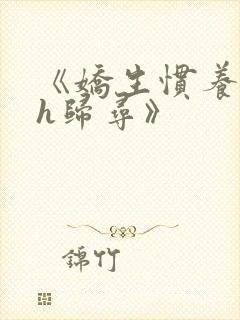 《嬌生慣養
h歸尋》
錦竹